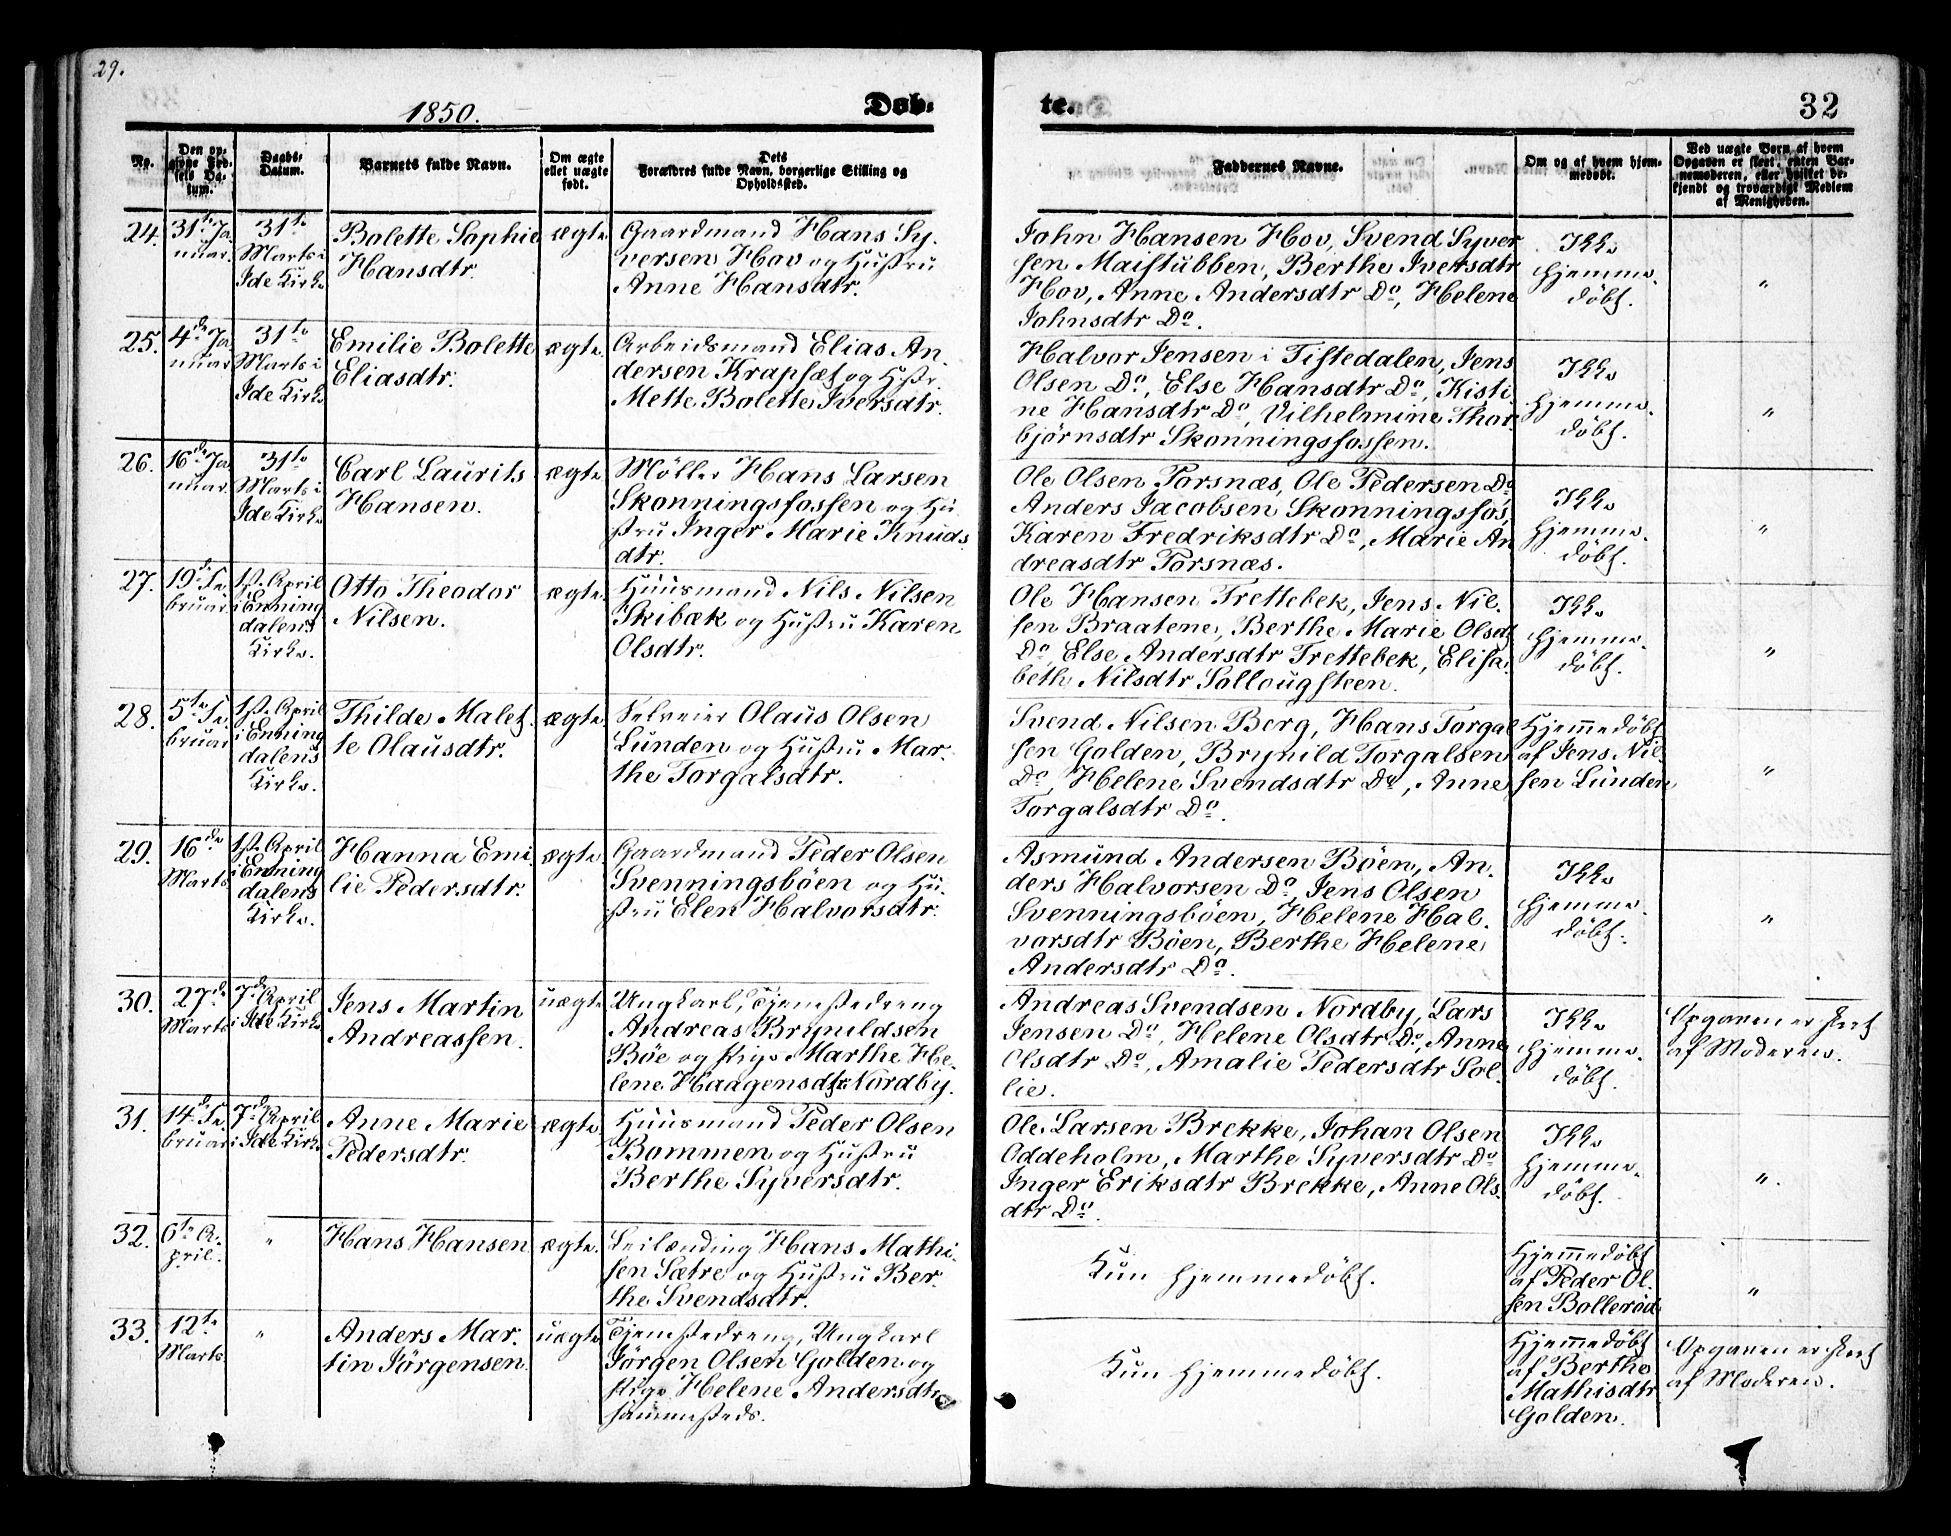 29.
1850.
Døb-
te.
32
No.
Den op-
givne Fød-
sels Da-
tum.
Daabs-
Datum.
Barnets fulde Navn.
Om ægte
eller uægte
født.
Dets
Forældres fulde Navn, borgerlige Stilling og
Opholdssted.
Faddernes Navne.
Om og af hvem hjem-
medøbt.
Ved uægte Børn af hvem
Opgaven er skeet, enten Bar-
nemoderen, eller hvilket be-
kjendt og troværdigt Medlem
af Menigheden.
24.
31te Ja
nuar.
31te
Marts i
Ide Kirke
Bolette Sophie
Hansdtr.
ægte
Gaardmand Hans Sy.
versen Hov og Hustru
Anne Hansdtr.
John Hansen Hov, Svend Syver
sen Maistubben, Berthe Iversdtr
Hov, Anne Andersdtr Do, Helene
Johnsdtr Do.
Ikke
hjemme.
døbt.
"
25.
4de Ja
nuar
31te
Marts i
Ide Kirke
Emilie Bolette
Eliasdtr.
ægte
Arbeidsmand Elias An
dersen Krapsæt og Hustr.
Mette Bolette Iversdtr.
Halvor Jensen i Tistedalen, Jens
Olsen Do, Else Hansdtr Do, Kisti
ne Hansdtr Do, Vilhelmine Thor
bjørnsdtr Skonningsfossen.
Ikke
hjemme.
døbt.
"
26.
16de Ja
nuar.
31te
Marts i
Ide Kirke
Carl Laurits
Hansen.
ægte
Møller Hans Larsen
Skonningsfossen og Hu
stru Inger Marie Knuds
dtr.
Ole Olsen Torsnæs, Ole Pedersen Do
Anders Jacobsen Skonningsfos,
Karen Fredriksdtr Do, Marie An
dreasdtr Torsnæs.
Ikke
hjemme.
døbt.
"
27.
19de Fe
bruar
1ste April
i Enning
dalens
Kirke.
Otto Theodor
Nilsen.
ægte.
Huusmand Nils Nilsen
Skibæk og Hustru Karen
Olsdtr.
Ole Hansen Trettebek, Jens Nil.
sen Braatene, Berthe Marie Olsdtr
Do, Else Andersdtr Trettebek, Elisa.
beth Nilsdtr Sollougsteen.
Ikke
hjemme.
døbt.
"
28.
5te Fe.
bruar
1ste April
i Enning
dalens
Kirke.
Thilde Malet.
te Olausdtr.
ægte
Selveier Olaus Olsen
Lunden og Hustru Mar.
the Torgalsdtr.
Svend Nilsen Berg, Hans Torgal
sen Golden, Brynild Torgalsen
Do, Helene Svendsdtr Do, Anne
Torgalsdtr Do.
Hjemmedøbt
af Jens Nil
sen Lunden
"
29.
16de
Marts
1ste April
i Enning
dalens
Kirke.
Hanna Emi
lie Pedersdtr.
ægte
Gaardmand Peder Olsen
Svenningsbøen og Hu.
stru Elen Halvorsdtr.
Asmund Andersen Bøen, An.
ders Halvorsen Do, Jens Olsen
Svenningsbøen, Helene Hal.
vorsdtr Bøen, Berthe Helene
Andersdtr Do.
Ikke
hjemme.
døbt.
"
30.
27de
Marts
7de April
i Ide Kirke
Jens Martin
Andreassen.
uægte
Ungkarl, Tjenestedreng
Andreas Brynildsen
Bøe og Pige Marthe He.
lene Haagensdtr Nordby.
Andreas Svendsen Nordby, Lars
Jensen Do, Helene Olsdtr Do, Anne
Olsdtr Do, Amalie Pedersdtr Sol.
lie.
Ikke
hjemme.
døbt.
Opgaven er skeet
af Moderen.
31.
14de Fe.
bruar
7de April
i Ide Kirke
Anne Marie
Pedersdtr.
ægte
Huusmand Peder Olsen
Bommen og Hustru
Berthe Syversdtr.
Ole Larsen Brekke, Johan Olsen
Oddeholm, Marthe Syversdtr Do
Inger Eriksdtr Brekke, Anne Ols.
dtr Do.
Ikke
hjemme.
døbt.
".
32.
6te A.
pril.
"
Hans Hansen
ægte.
Leilænding Hans Mathi.
sen Sætre og Hustru Ber.
the Svendsdtr.
Kun hjemmedøbt.
Hjemmedøbt
af Peder Ol.
sen Bollerød
"
33.
12te
Marts
"
Anders Mar.
tin Jørgensen.
uægte
Tjenestedreng, Ungkarl
Jørgen Olsen Golden og
Pige Helene Andersdtr
sammesteds.
Kun hjemmedøbt.
Hjemmedøbt
af Berthe
Mathisdtr
Golden.
Opgaven er skeet
af Moderen.